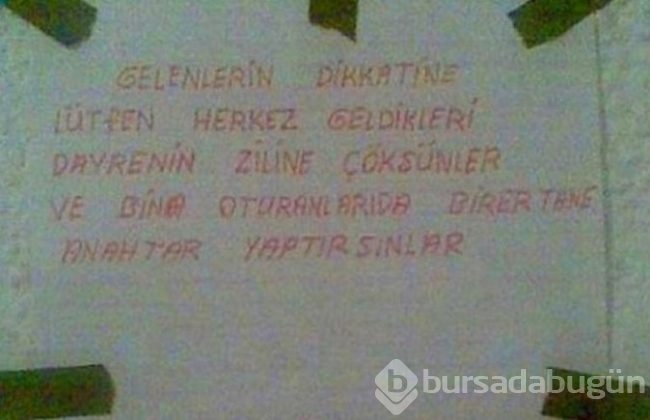 GELENLERİN DİKKATİNE
LÜTFEN HERKEZ GELDİKLERİ
DAYRENİN ZİLİNE ÇÖKSÜNLER
VE BİNA OTURANLARIDA BİRER TANE
ANAHTAR YAPTIRSINLAR
b bursadabugün